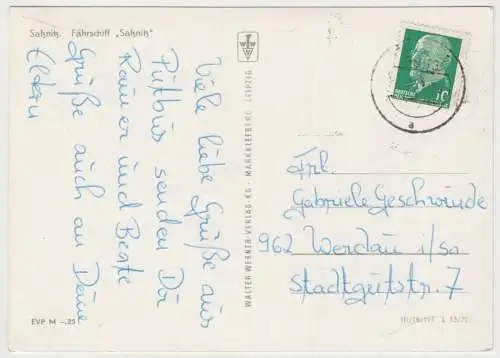 Saßnitz. Fährschiff „Saßnitz"
Viele liebe Grüße aus
Putbus senden Dir
Rainer und Beate
Grüße auch an Deine
Eltern
EVP M -.25
WALTER WERNER-VERLAG KG · MARKKLEEBERG · LEIPZIG
10
Frl.
Gabriele Geschwinde
962 Werdau i/Sa
Stadtgutstr. 7